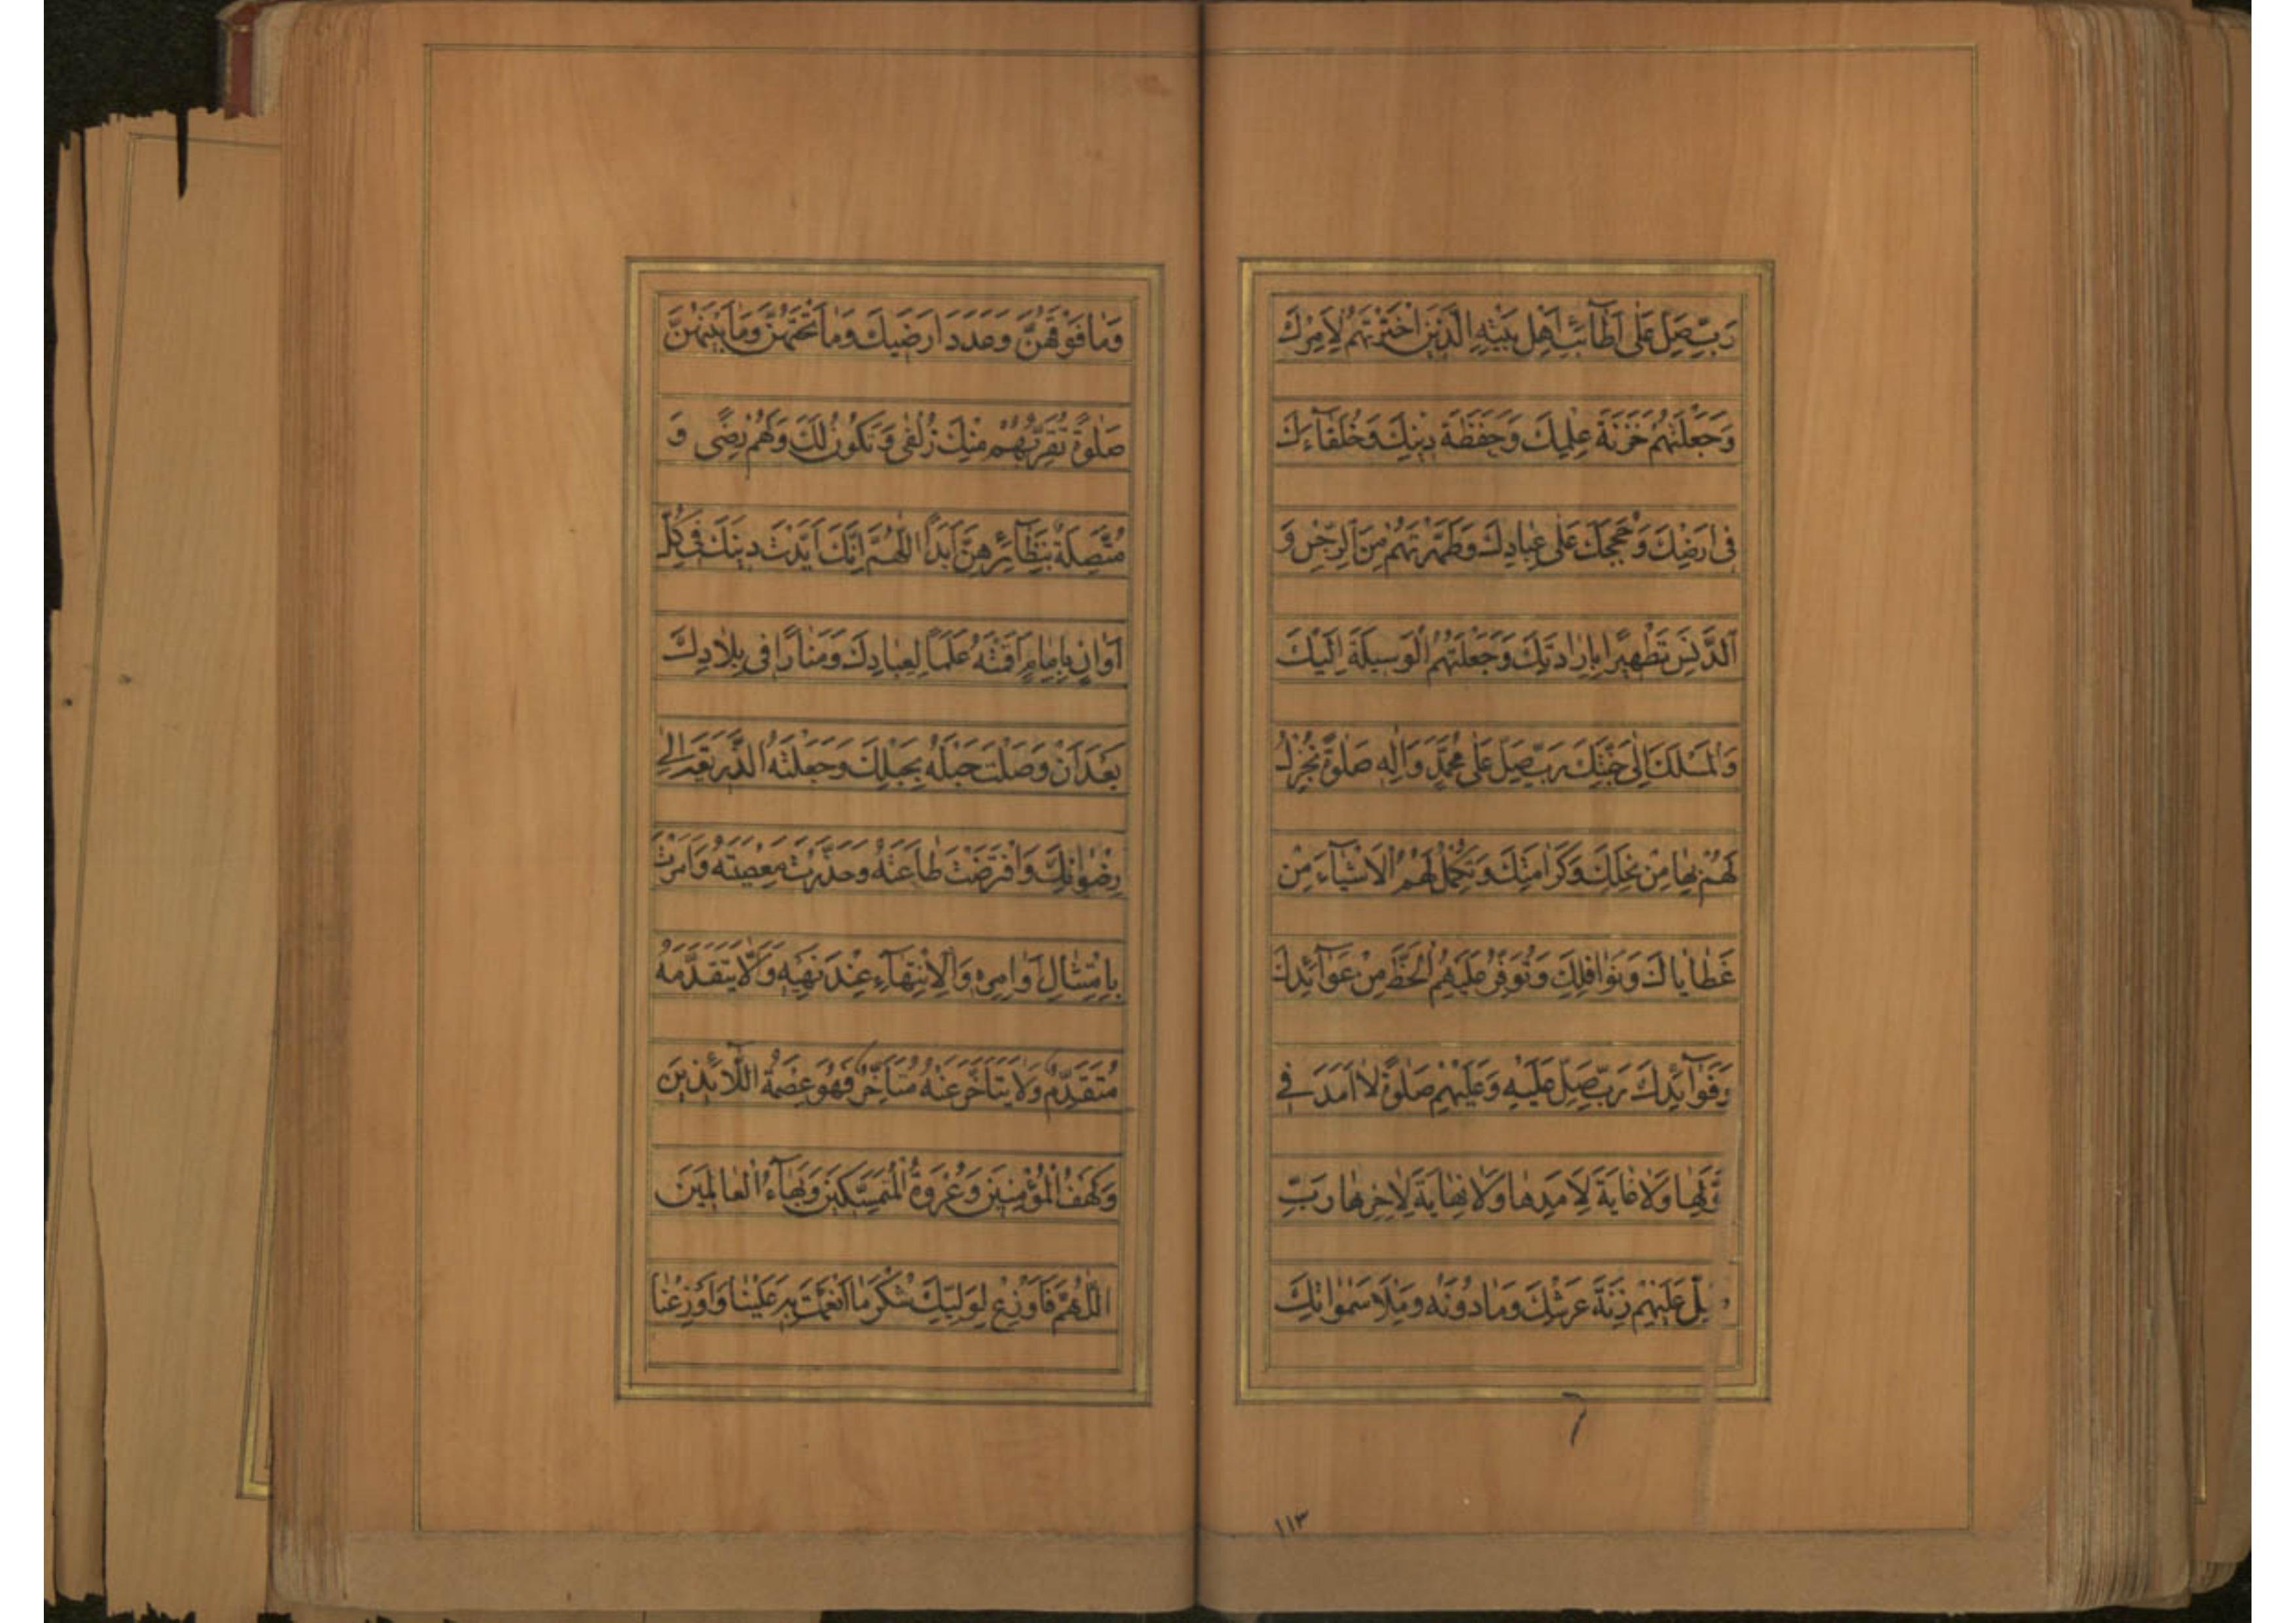 رَبِّ صَلِّ عَلٰى اَطَآئِبِ اَهْلِ بَيْتِهِ الَّذِينَ اخْتَرْتَهُمْ لِاَمْرِكَ
وَجَعَلْتَهُمْ خَزَنَةَ عِلْمِكَ وَحَفَظَةَ دِينِكَ وَخُلَفَآءَكَ
فِى اَرْضِكَ وَحُجَجَكَ عَلٰى عِبَادِكَ وَطَهَّرْتَهُمْ مِنَ الرِّجْسِ وَ
الدَّنَسِ تَطْهِيرًا بِاِرَادَتِكَ وَجَعَلْتَهُمُ الْوَسِيلَةَ اِلَيْكَ
وَالْمَسْلَكَ اِلٰى جَنَّتِكَ رَبِّ صَلِّ عَلٰى مُحَمَّدٍ وَاٰلِهِ صَلٰوةً تُجْزِلُ
لَهُمْ بِهَا مِنْ نِحَلِكَ وَكَرَامَتِكَ وَتُكْمِلُ لَهُمُ الْاَشْيَآءَ مِنْ
عَطَايَاكَ وَنَوَافِلِكَ وَتُوَفِّرُ عَلَيْهِمُ الْحَظَّ مِنْ عَوَآئِدِكَ
وَفَوَآئِدِكَ رَبِّ صَلِّ عَلَيْهِ وَعَلَيْهِمْ صَلٰوةً لَا اَمَدَ فِى
وَّلِهَا وَلَا غَايَةَ لِاَمَدِهَا وَلَا نِهَايَةَ لِاٰخِرِهَا رَبِّ
صَلِّ عَلَيْهِمْ زِنَةَ عَرْشِكَ وَمَا دُونَهُ وَمِلْاَ سَمٰوَاتِكَ
١١٣
وَمَا فَوْقَهُنَّ وَعَدَدَ اَرَضِيكَ وَمَا تَحْتَهُنَّ وَمَا بَيْنَهُنَّ
صَلٰوةً تُقَرِّبُهُمْ مِنْكَ زُلْفٰى وَتَكُونُ لَكَ وَلَهُمْ رِضًى وَ
مُتَّصِلَةً بِنَظَآئِرِهِنَّ اَبَدًا اَللّٰهُمَّ اِنَّكَ اَيَّدْتَ دِينَكَ فِى كُلِّ
اَوَانٍ بِاِمَامٍ اَقَمْتَهُ عَلَمًا لِعِبَادِكَ وَمَنَارًا فِى بِلَادِكَ
بَعْدَ اَنْ وَصَلْتَ حَبْلَهُ بِحَبْلِكَ وَجَعَلْتَهُ الذَّرِيعَةَ اِلٰى
رِضْوَانِكَ وَافْتَرَضْتَ طَاعَتَهُ وَحَذَّرْتَ مَعْصِيَتَهُ وَاَمَرْتَ
بِامْتِثَالِ اَوَامِرِهِ وَالْاِنْتِهَآءِ عِنْدَ نَهْيِهِ وَاَلَّا يَتَقَدَّمَهُ
مُتَقَدِّمٌ وَلَا يَتَاَخَّرَ عَنْهُ مُتَاَخِّرٌ فَهُوَ عِصْمَةُ اللَّآئِذِينَ
وَكَهْفُ الْمُؤْمِنِينَ وَعُرْوَةُ الْمُتَمَسِّكِينَ وَبَهَآءُ الْعَالَمِينَ
اَللّٰهُمَّ فَاَوْزِعْ لِوَلِيِّكَ شُكْرَ مَا اَنْعَمْتَ بِهِ عَلَيْنَا وَاَوْزِعْنَا